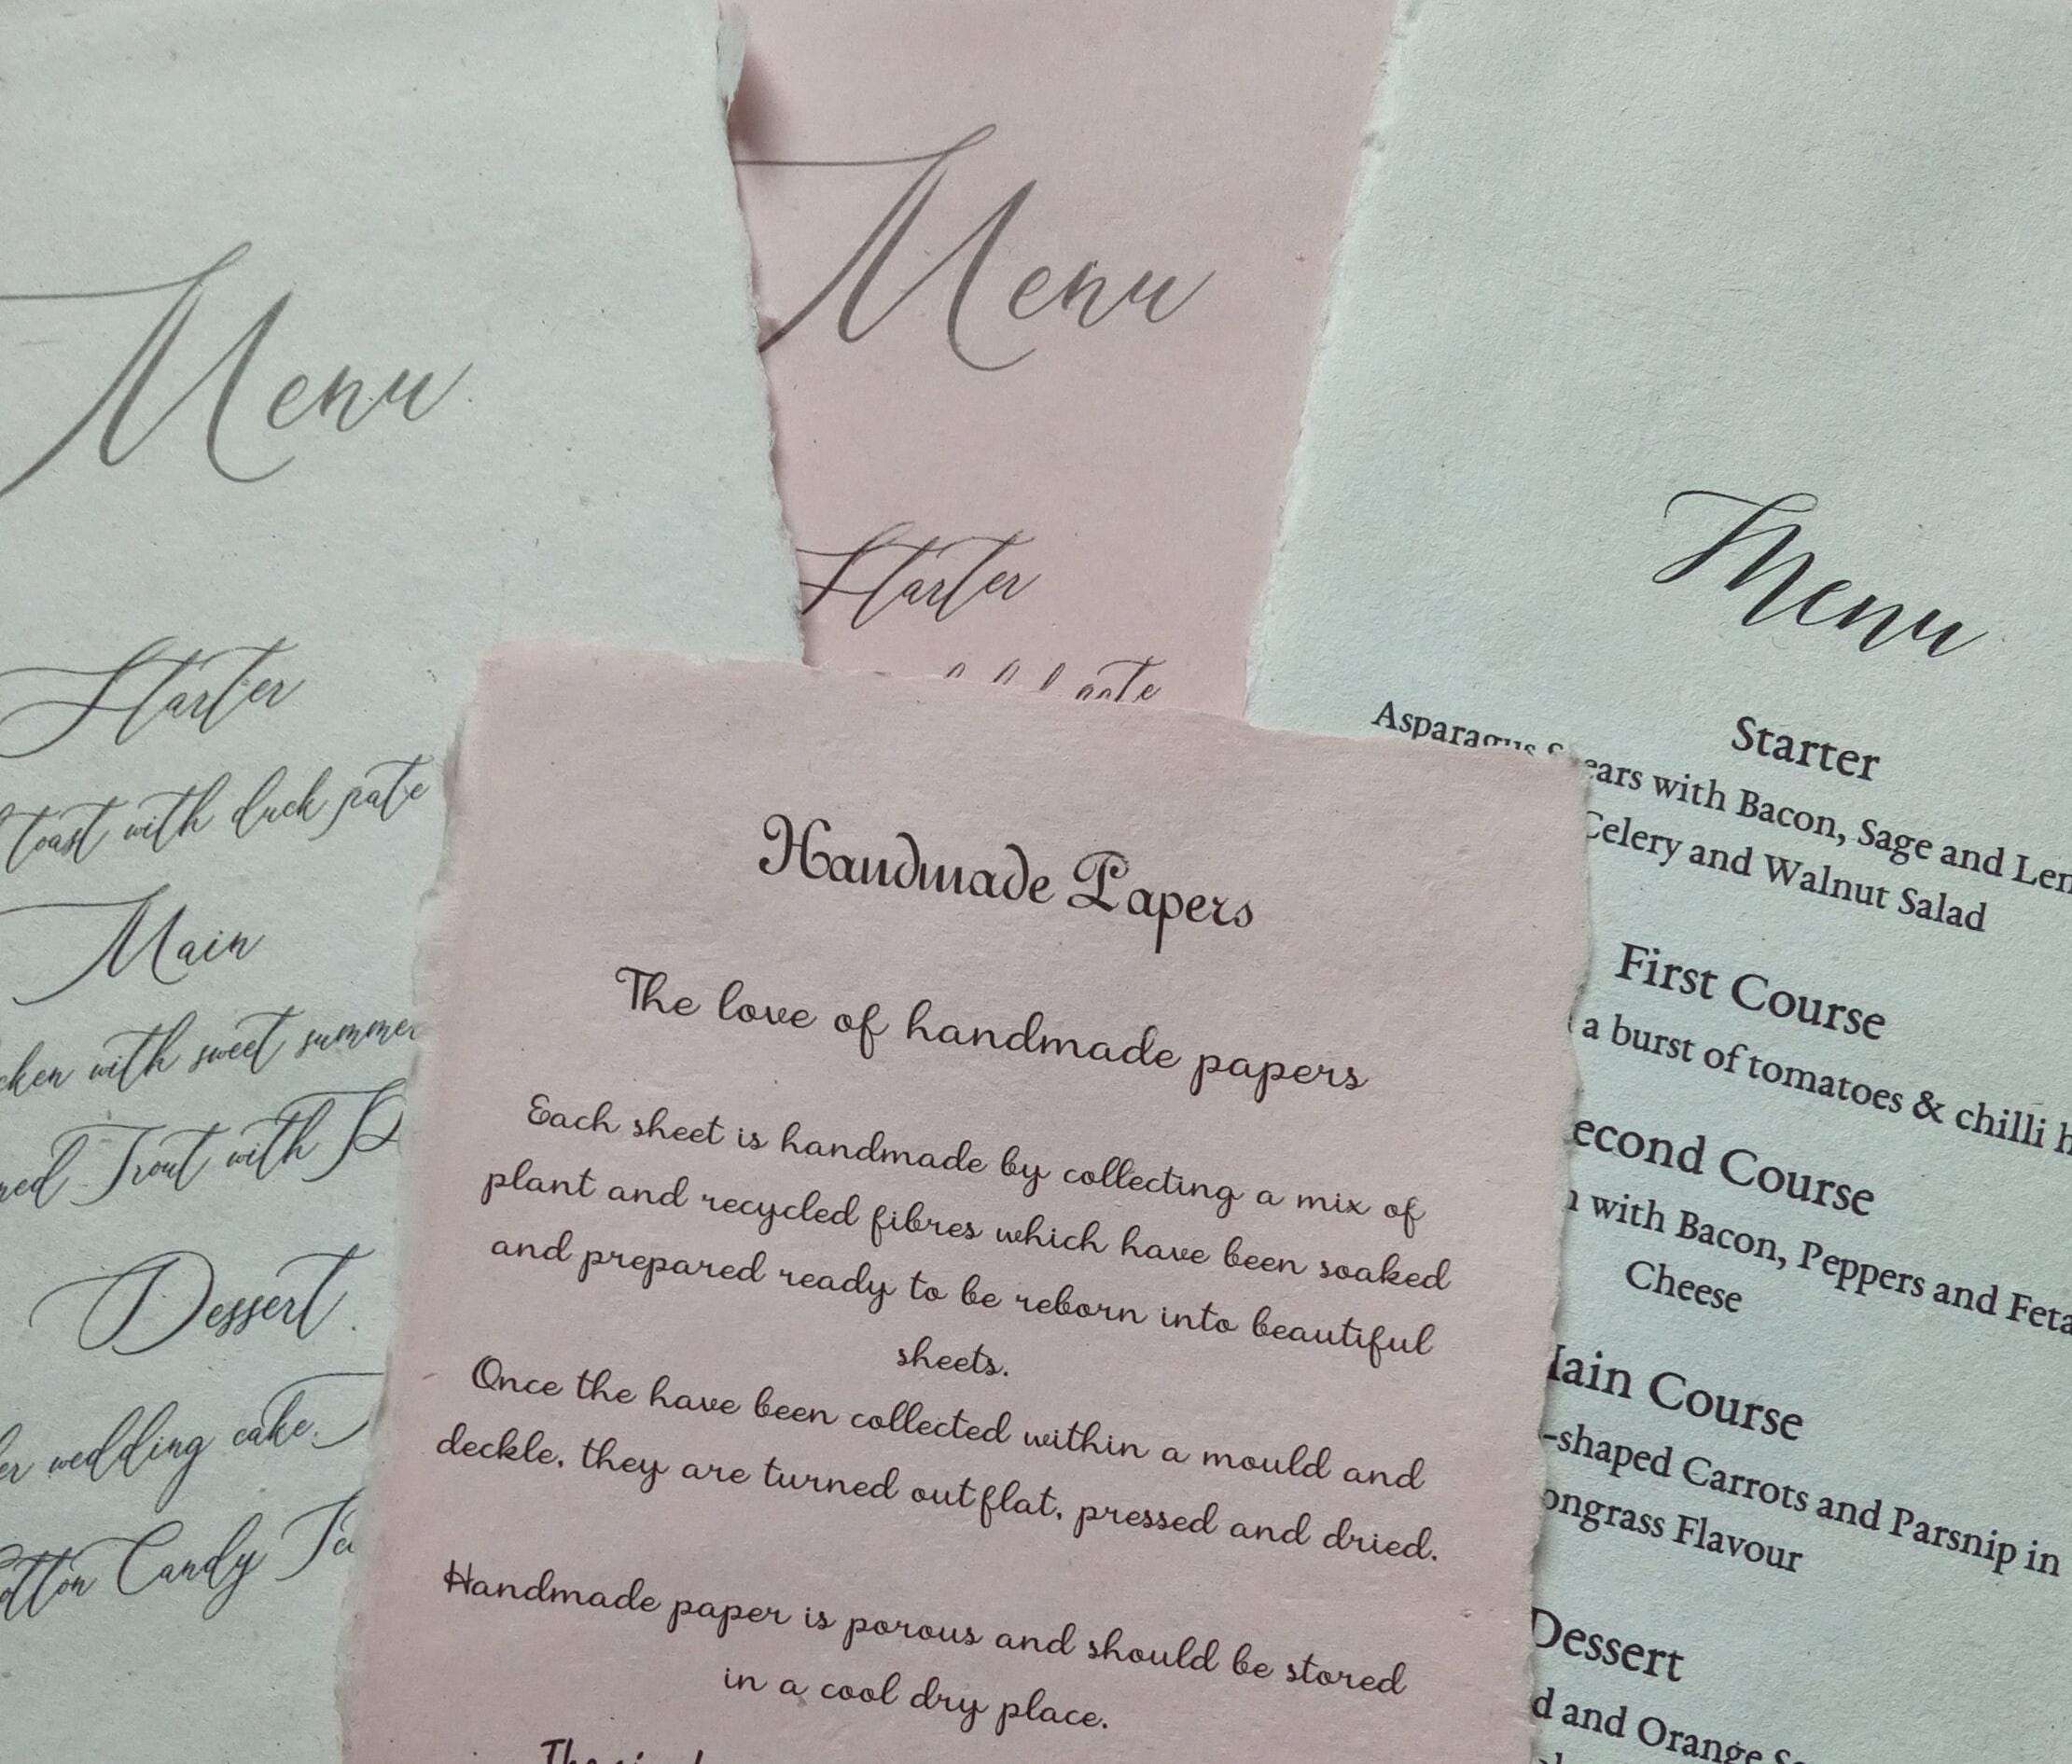 Menu
Starter
toast with duck pate
Main
with sweet summer
Trout with
Dessert
wedding cake.
Candy
Menu
Starter
pate
Menu
Starter
Asparagus Spears with Bacon, Sage and
Celery and Walnut Salad
First Course
a burst of tomatoes & chilli
Second Course
with Bacon, Peppers and Feta
Cheese
Main Course
-shaped Carrots and Parsnip in
Flavour
Dessert
and Orange
Handmade Papers
The love of handmade papers
Each sheet is handmade by collecting a mix of
plant and recycled fibres which have been soaked
and prepared ready to be reborn into beautiful
sheets.
Once the have been collected within a mould and
deckle, they are turned out flat, pressed and dried.
Handmade paper is porous and should be stored
in a cool dry place.